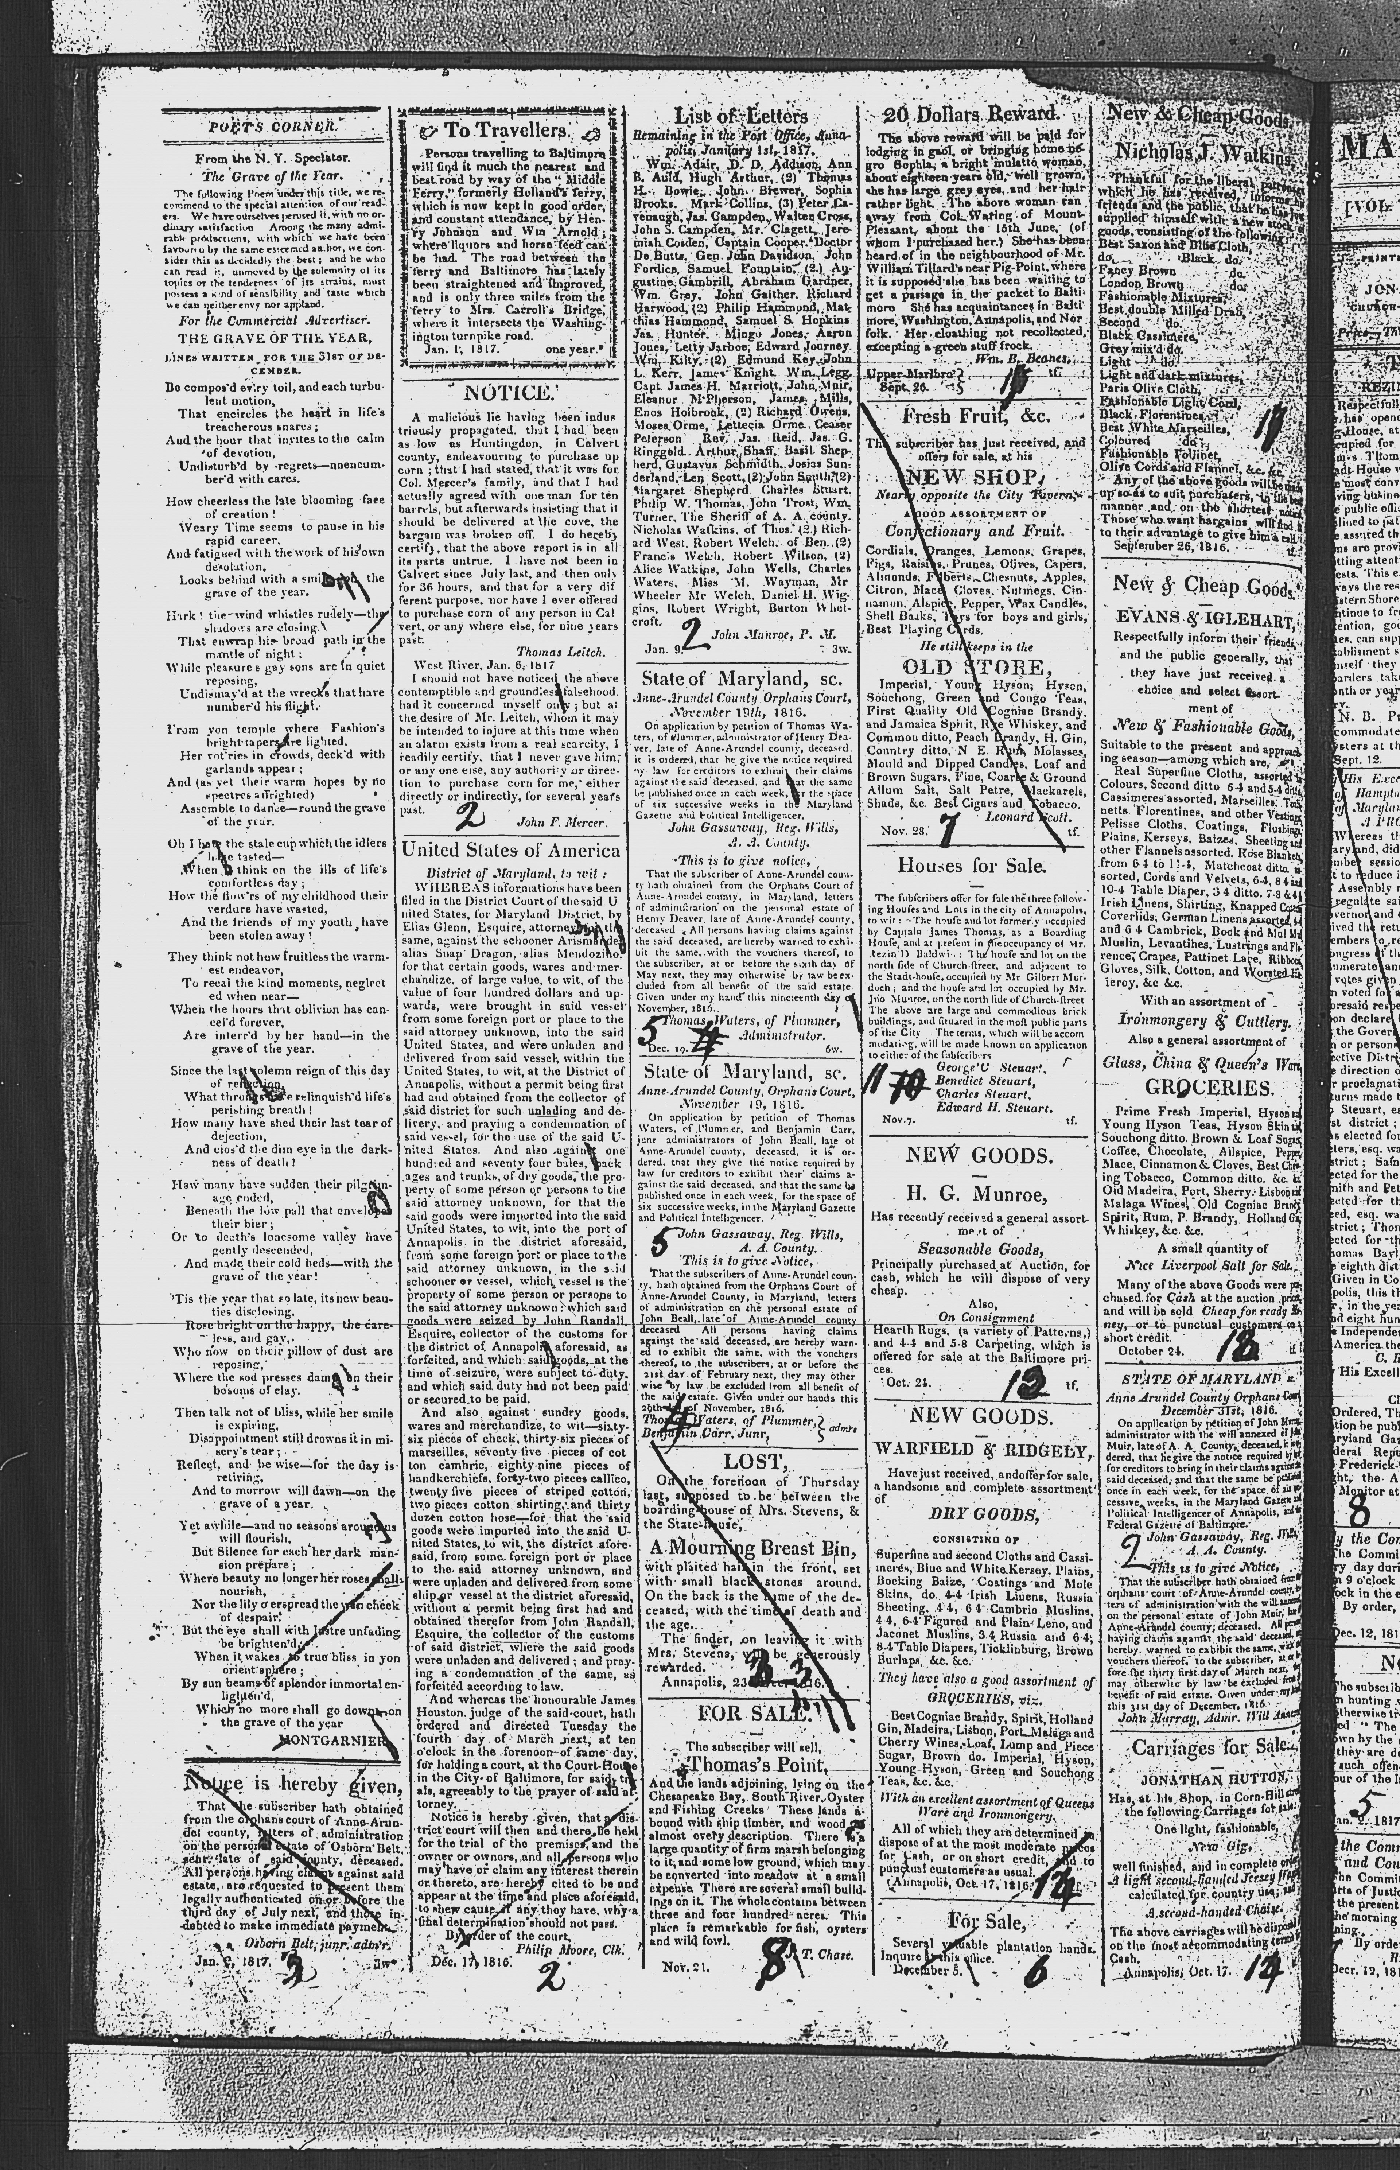 POETS CORNER.
From the N. Y. Spectator.
The Grave of the Year.
The following Poem under this title, we re-
commend to the special attention of our read-
ers. We have ourselves perused it, with no or-
dinary satisfaction Among the many admi-
rable productions, with which we have been
favoured by the same esteemed author, we con-
sider this as decidedly the best; and he who
can read it, unmoved by the solemnity of its
topics or the tenderness of its strains, must
possess a kind of sensibility and taste which
we can neither envy nor applaud.
For the Commercial Advertiser.
THE GRAVE OF THE YEAR,
LINES WRITTEN FOR THE 31ST OF DE-
CEMBER.
Be compos'd ev'ry toil, and each turbu-
lent motion,
That encircles the heart in life's
treacherous snares;
And the hour that invites to the calm
of devotion,
Undisturb'd by regrets—unencum-
ber'd with cares.
How cheerless the late blooming face
of creation!
Weary Time seems to pause in his
rapid career,
And fatigued with the work of his own
desolation,
Looks behind with a the
grave of the year.
Hark! the wind whistles rudely—the
shadows are closing.
That enwrap his broad path in the
mantle of night;
While pleasure's gay sons are in quiet
reposing,
Undismay'd at the wrecks that have
number'd his flight.
From yon temple where Fashion's
bright tapers are lighted,
Her vot'ries in crowds, deck'd with
garlands appear;
And (as yet their warm hopes by no
spectres affrighted)
Assemble to dance—round the grave
of the year.
Oh I the stale cup which the idlers
tasted—
When think on the ills of life's
comfortless day;
How the flow'rs of my childhood their
verdure have wasted,
And the friends of my youth, have
been stolen away!
They think not how fruitless the warm-
est endeavor,
To recal the kind moments, neglect
ed when near—
When the hours that oblivion has can-
cel'd forever,
Are interr'd by her hand—in the
grave of the year.
Since the last solemn reign of this day
of reflection,
What relinquish'd life's
perishing breath!
How many have shed their last tear of
dejection,
And clos'd the dim eye in the dark-
ness of death!
How many have sudden their pilgrim-
age ended,
Beneath the low pall that envelops
their bier;
Or to death's lonesome valley have
gently descended,
And made their cold beds—with the
grave of the year!
'Tis the year that so late, its new beau-
ties disclosing,
Rose bright on the happy, the care-
less, and gay,
Who now on their pillow of dust are
reposing,
Where the sod presses damp on their
bosoms of clay.
Then talk not of bliss, while her smile
is expiring,
Disappointment still drowns it in mi-
sery's tear;
Reflect, and be wise—for the day is
retiring,
And to morrow will dawn—on the
grave of a year.
Yet awhile—and no seasons around us
will flourish,
But Silence for each her dark man-
sion prepare;
Where beauty no longer her roses shall
nourish,
Nor the lily o'erspread the wan cheek
of despair!
But the eye shall with lustre unfading
be brighten'd,
When it wakes to true bliss in yon
orient sphere;
By sun beams of splendor immortal en-
lighten'd,
Which no more shall go down—on
the grave of the year
MONTGARNIER
Notice is hereby given,
That the subscriber hath obtained
from the orphans court of Anne-Arun-
del county, letters of administration
on the personal estate of Osborn Belt,
senr. late of said county, deceased.
All persons having claims against said
estate, are requested to present them
legally authenticated on or before the
third day of July next, and those in-
debted to make immediate payment.
Osborn Belt, junr. adm'r.
Jan. 2, 1817. 3 3w*
To Travellers
Persons travelling to Baltimore
will find it much the nearest and
best road by way of the "Middle
Ferry," formerly Holland's ferry,
which is now kept in good order
and constant attendance, by Hen-
ry Johnson and Wm Arnold;
where liquors and horse feed can
be had. The road between the
ferry and Baltimore has lately
been straightened and improved,
and is only three miles from the
ferry to Mrs. Carroll's Bridge,
where it intersects the Washing-
ington turnpike road.
Jan. 1, 1817. one year.
NOTICE.
A malicious lie having been indus
triously propagated, that I had been
as low as Huntingdon, in Calvert
county, endeavouring to purchase up
corn; that I had stated, that it was for
Col. Mercer's family, and that I had
actually agreed with one man for ten
barrels, but afterwards insisting that it
should be delivered at the cove, the
bargain was broken off. I do hereby
certify, that the above report is in all
its parts untrue. I have not been in
Calvert since July last, and then only
for 36 hours, and that for a very dif
ferent purpose, nor have I ever offered
to purchase corn of any person in Cal
vert, or any where else, for nine years
past.
Thomas Leitch.
West River, Jan. 6, 1817
I should not have noticed the above
contemptible and groundless falsehood,
had it concerned myself only; but at
the desire of Mr. Leitch, whom it may
be intended to injure at this time when
an alarm exists from a real scarcity, I
readily certify, that I never gave him,
or any one else, any authority or direc-
tion to purchase corn for me, either
directly or indirectly, for several years
past. 2
John F. Mercer.
United States of America
District of Maryland, to wit:
WHEREAS informations have been
filed in the District Court of the said U
nited States, for Maryland District, by
Elias Glenn, Esquire, attorney
same, against the schooner Arismendez
alias Snap Dragon, alias Mendozino
for that certain goods, wares and mer-
chandize, of large value, to wit, of the
value of four hundred dollars and up-
wards, were brought in said vessel
from some foreign port or place to the
said attorney unknown, into the said
United States, and were unladen and
delivered from said vessel, within the
United States, to wit, at the District of
Annapolis, without a permit being first
had and obtained from the collector of
said district for such unlading and de-
livery, and praying a condemnation of
said vessel, for the use of the said U-
nited States. And also against one
hundred and seventy four bales, pack
ages and trunks, of dry goods, the pro-
perty of some person or persons to the
said attorney unknown, for that the
said goods were imported into the said
United States, to wit, into the port of
Annapolis in the district aforesaid,
from some foreign port or place to the
said attorney unknown, in the said
schooner or vessel, which vessel is the
property of some person or persons to
the said attorney unknown; which said
goods were seized by John Randall,
Esquire, collector of the customs for
the district of Annapolis aforesaid, as
forfeited, and which said goods, at the
time of seizure, were subject to duty,
and which said duty had not been paid
or secured to be paid.
And also against sundry goods,
wares and merchandize, to wit—sixty-
six pieces of check, thirty-six pieces of
marseilles, seventy five pieces of cot
ton cambric, eighty-nine pieces of
handkerchiefs, forty-two pieces callico,
twenty five pieces of striped cotton,
two pieces cotton shirting, and thirty
dozen cotton hose—for that the said
goods were imported into the said U-
nited States, to wit, the district afore-
said, from some foreign port or place
to the said attorney unknown, and
were unladen and delivered from some
ship or vessel at the district aforesaid,
without a permit being first had and
obtained therefor from John Randall,
Esquire, the collector of the customs
of said district, where the said goods
were unladen and delivered; and pray-
ing a condemnation of the same, as
forfeited according to law.
And whereas the honourable James
Houston, judge of the said court, hath
ordered and directed Tuesday the
fourth day of March next, at ten
o'clock in the forenoon of same day,
for holding a court, at the Court-House
in the City of Baltimore, for said tri
als, agreeably to the prayer of said at
torney.
Notice is hereby given, that a dis-
trict court will then and there be held
for the trial of the premises, and the
owner or owners, and all persons who
may have or claim any interest therein
or thereto, are hereby cited to be and
appear at the time and place aforesaid,
to shew cause if any they have, why a
final determination should not pass.
By order of the court,
Philip Moore, Clk.
Dec. 17, 1816. 2
List of Letters
Remaining in the Post Office, Anna-
polis, January 1st, 1817.
Wm. Adair, D. D. Addison, Ann
B. Auld, Hugh Arthur, (2) Thomas
H. Bowie, John Brewer, Sophia
Brooks. Mark Collins, (3) Peter Ca-
venaugh, Jas. Campden, Walter Cross,
John S. Campden, Mr. Clagett, Jere-
miah Cosden, Captain Cooper. Doctor
De Butts, Gen. John Davidson, John
Fordice, Samuel Fountain, (2.) Au-
gustine Gambrill, Abraham Gardner,
Wm. Gray, John Gaither. Richard
Harwood, (2) Philip Hammond, Mat-
thias Hammond, Samuel S. Hopkins
Jas. Hunter. Mingo Jones, Aaron
Jones, Letty Jarboe, Edward Journey.
Wm. Kilty, (2) Edmund Key, John
L. Kerr, James Knight. Wm. Legg.
Capt. James H. Marriott, John Muir,
Eleanor M'Pherson, James Mills,
Enos Holbrook, (2) Richard Owens,
Moses Orme, Lettecia Orme. Ceaser
Peterson Rev. Jas. Reid, Jas. G.
Ringgold. Arthur Shaff, Basil Shep-
herd, Gustavus Schmidth, Josias Sun-
derland, Len Scott, (2) John Smith, (2)
Margaret Shepherd, Charles Stuart.
Philip W. Thomas, John Trost, Wm.
Turner. The Sheriff of A. A. county.
Nicholas Watkins, of Thos. (2.) Rich-
ard West, Robert Welch, of Ben. (2)
Francis Welch, Robert Wilson, (2)
Alice Watkins, John Wells, Charles
Waters, Miss M. Wayman, Mr
Wheeler Mr Welch, Daniel H. Wig-
gins, Robert Wright, Burton Whet-
croft. 2 John Munroe, P. M.
Jan. 9. 3w.
State of Maryland, sc.
Anne-Arundel County Orphans Court,
November 19th, 1816.
On application by petition of Thomas Wa-
ters, of Plummer, administrator of Henry Dea-
ver, late of Anne-Arundel county, deceased.
it is ordered, that he give the notice required
by law for creditors to exhibit their claims
against the said deceased, and that the same
be published once in each week, for the space
of six successive weeks in the Maryland
Gazette and Political Intelligencer.
John Gassaway, Reg. Wills,
A. A. County.
This is to give notice,
That the subscriber of Anne-Arundel coun-
ty hath obtained from the Orphans Court of
Anne-Arundel county, in Maryland, letters
of administration on the personal estate of
Henry Deaver, late of Anne-Arundel county,
deceased All persons having claims against
the said deceased, are hereby warned to exhi-
bit the same, with the vouchers thereof, to
the subscriber, at or before the sixth day of
May next, they may otherwise by law be ex-
cluded from all benefit of the said estate.
Given under my hand this nineteenth day of
November, 1816.
5 Thomas Waters, of Plummer,
Administrator.
Dec. 19. 4 6w.
State of Maryland, sc.
Anne-Arundel County, Orphans Court,
November 19, 1816.
On application by petition of Thomas
Waters, of Plummer, and Benjamin Carr,
junr administrators of John Beall, late of
Anne-Arundel county, deceased, it is or-
dered, that they give the notice required by
law for creditors to exhibit their claims a-
gainst the said deceased, and that the same be
published once in each week, for the space of
six successive weeks, in the Maryland Gazette
and Political Intelligencer.
5 John Gassaway, Reg. Wills,
A. A. County.
This is to give Notice,
That the subscribers of Anne-Arundel coun-
ty, hath obtained from the Orphans Court of
Anne-Arundel County, in Maryland, letters
of administration on the personal estate of
John Beall, late of Anne-Arundel county
deceased All persons having claims
against the said deceased, are hereby warn-
ed to exhibit the same, with the vouchers
thereof, to the subscribers, at or before the
21st day of February next, they may other
wise by law be excluded from all benefit of
the said estate. Given under our hands this
20th of November, 1816.
Thomas Waters, of Plummer,
Benjamin Carr, Junr, admrs
4
LOST,
On the forenoon of Thursday
last, supposed to be between the
boarding house of Mrs. Stevens, &
the State-house,
A Mourning Breast Pin,
with plaited hair in the front, set
with small black stones around.
On the back is the name of the de-
ceased, with the time of death and
the age.
The finder, on leaving it with
Mrs. Stevens, will be generously
rewarded.
Annapolis, 1816.
FOR SALE.
The subscriber will sell,
Thomas's Point,
And the lands adjoining, lying on the
Chesapeake Bay, South River, Oyster
and Fishing Creeks These lands a-
bound with ship timber, and wood of
almost every description. There is a
large quantity of firm marsh belonging
to it, and some low ground, which may
be converted into meadow at a small
expense There are several small build-
ings on it. The whole contains between
three and four hundred acres. This
place is remarkable for fish, oysters
and wild fowl.
8 T. Chase.
Nov. 21.
20 Dollars Reward.
The above reward will be paid for
lodging in gaol, or bringing home ne-
gro Sophia, a bright mulatto woman,
about eighteen years old, well grown,
she has large grey eyes, and her hair
rather light. The above woman ran
away from Col. Waring of Mount-
Pleasant, about the 15th June, (of
whom I purchased her.) She has been
heard of in the neighbourhood of Mr.
William Tillard's near Pig-Point, where
it is supposed she has been waiting to
get a passage in the packet to Balti-
more She has acquaintances in Balti
more, Washington, Annapolis, and Nor
folk. Her cloathing not recollected,
excepting a green stuff frock.
Wm. B. Beanes,
Upper Marlbro'
Sept. 26. tf.
Fresh Fruit, &c.
The subscriber has just received, and
offers for sale, at his
NEW SHOP,
Nearly opposite the City Tavern,
A GOOD ASSORTMENT OF
Confectionary and Fruit.
Cordials, Oranges, Lemons, Grapes,
Figs, Raisins, Prunes, Olives, Capers,
Almonds, Filberts, Chesnuts, Apples,
Citron, Mace, Cloves, Nutmegs, Cin-
namon, Alspice, Pepper, Wax Candles,
Shell Barks, Toys for boys and girls,
Best Playing Cards.
He still keeps in the
OLD STORE,
Imperial, Young Hyson, Hyson,
Souchong, Green and Congo Teas,
First Quality Old Cogniac Brandy
and Jamaica Spirit, Rye Whiskey, and
Common ditto, Peach Brandy, H. Gin,
Country ditto, N E Rum, Molasses,
Mould and Dipped Candles, Loaf and
Brown Sugars, Fine, Coarse & Ground
Allum Salt, Salt Petre, Mackarels,
Shads, &c. Best Cigars and Tobacco.
Leonard Scott.
Nov. 28. 7 tf.
Houses for Sale.
The subscribers offer for sale the three follow-
ing Houses and Lots in the city of Annapolis,
to wit: The house and lot formerly occupied
by Captain James Thomas, as a Boarding
House, and at present in the occupancy of Mr.
Rezin D. Baldwin: The house and lot on the
north side of Church-street, and adjacent to
the Stadt-house, occupied by Mr. Gilbert Mur-
doch; and the house and lot occupied by Mr.
Jno Munroe, on the north side of Church-street
The above are large and commodious brick
buildings, and situated in the most public parts
of the City The terms, which will be accom
modating, will be made known on application
to either of the subscribers
George C Steuart,
Benedict Steuart,
Charles Steuart,
Edward H. Steuart.
11 10
Nov. 7. tf.
NEW GOODS.
H. G. Munroe,
Has recently received a general assort-
ment of
Seasonable Goods,
Principally purchased at Auction, for
cash, which he will dispose of very
cheap.
Also,
On Consignment
Hearth Rugs, (a variety of Patterns,)
and 4-4 and 5-8 Carpeting, which is
offered for sale at the Baltimore pri-
ces.
Oct. 24. 13 tf.
NEW GOODS.
WARFIELD & RIDGELY,
Have just received, and offer for sale,
a handsome and complete assortment
of
DRY GOODS,
CONSISTING OF
Superfine and second Cloths and Cassi-
meres, Blue and White Kersey, Plains,
Bocking Baize, Coatings and Mole
Skins, do. 4-4 Irish Linens, Russia
Sheeting, 4 4, 6 4 Cambric Muslins,
4 4, 6-4 Figured and Plain Leno, and
Jaconet Muslins, 3-4 Russia and 6-4;
8-4 Table Diapers, Ticklinburg, Brown
Burlaps, &c. &c.
They have also a good assortment of
GROCERIES, viz.
Best Cogniac Brandy, Spirit, Holland
Gin, Madeira, Lisbon, Port, Malaga and
Cherry Wines, Loaf, Lump and Piece
Sugar, Brown do. Imperial, Hyson,
Young Hyson, Green and Souchong
Teas, &c. &c.
With an excellent assortment of Queens
Ware and Ironmongery,
All of which they are determined to
dispose of at the most moderate prices
for Cash, or on short credit, and to
punctual customers as usual.
Annapolis, Oct. 17, 1816. 14
For Sale,
Several valuable plantation hands.
Inquire at this office.
December 5. 6
New & Cheap Goods.
Nicholas J. Watkins,
Thankful for the liberal patronage
which he has received, informs his
friends and the public, that he has just
supplied himself with a new stock of
goods, consisting of the following:
Best Saxon and Blue Cloth,
do. Black do.
Fancy Brown do.
London Brown do.
Fashionable Mixtures,
Best double Milled Drab,
Second do.
Black Cassimere,
Grey mix'd do.
Light do.
Light and dark mixtures,
Paris Olive Cloth,
Fashionable Light Cord,
Black Florentines,
Best White Marseilles,
Coloured do.
Fashionable Toilinet,
Olive Cords and Flannel, &c. &c.
Any of the above goods will be made
up so as to suit purchasers, in the best
manner and on the shortest notice
Those who want bargains will find it
to their advantage to give him a call
September 26, 1816. tf.
New & Cheap Goods.
EVANS & IGLEHART,
Respectfully inform their friends,
and the public generally, that
they have just received a
choice and select assort-
ment of
New & Fashionable Goods,
Suitable to the present and approach-
ing season—among which are,
Real Superfine Cloths, assorted
Colours, Second ditto 6-4 and 5-4 ditto
Cassimeres assorted, Marseilles, Toili-
netts. Florentines, and other Vesting
Pelisse Cloths, Coatings, Flushing
Plains, Kerseys, Baizes, Sheeting and
other Flannels assorted, Rose Blankets
from 6 4 to 11-4, Matchcoat ditto as-
sorted, Cords and Velvets, 6-4, 8 4 and
10-4 Table Diaper, 3 4 ditto. 7-8 & 4-4
Irish Linens, Shirting, Knapped Cotton
Coverlids, German Linens assorted, 4-4
and 6 4 Cambrick, Book and Mul Mul
Muslin, Levantines, Lustrings and Flo-
rence, Crapes, Pattinet Lace, Ribbon
Gloves, Silk, Cotton, and Worsted Ho-
siery, &c &c.
With an assortment of
Ironmongery & Cuttlery.
Also a general assortment of
Glass, China & Queen's Ware
GROCERIES.
Prime Fresh Imperial, Hyson &
Young Hyson Teas, Hyson Skin &
Souchong ditto. Brown & Loaf Sugar
Coffee, Chocolate, Allspice, Pepper
Mace, Cinnamon & Cloves, Best Chew-
ing Tobacco, Common ditto. &c. &c
Old Madeira, Port, Sherry, Lisbon &
Malaga Wines, Old Cogniac Brandy
Spirit, Rum, P. Brandy, Holland Gin
Whiskey, &c. &c.
A small quantity of
Nice Liverpool Salt for Sale.
Many of the above Goods were pur-
chased for Cash at the auction
and will be sold Cheap for ready mo-
ney, or to punctual customers on
short credit.
October 24. 12 tf
STATE OF MARYLAND
Anne Arundel County Orphans Court
December 31st, 1816.
On application by petition of John Murray
administrator with the will annexed of John
Muir, late of A. A. County, deceased, it is or-
dered, that he give the notice required by law
for creditors to bring in their claims against
said deceased, and that the same be published
once in each week, for the space of six suc-
cessive weeks, in the Maryland Gazette and
Political Intelligencer of Annapolis, and
Federal Gazette of Baltimore.
2 John Gassaway, Reg. Wills,
A. A. County.
This is to give Notice,
That the subscriber hath obtained from
orphans' court of Anne-Arundel county, let-
ters of administration with the will annexed
on the personal estate of John Muir, late
Anne-Arundel county, deceased. All persons
having claims against the said deceased,
hereby warned to exhibit the same, with
vouchers thereof, to the subscriber, at or be-
fore the thirty first day of March next, they
may otherwise by law be excluded from
benefit of said estate. Given under my hand
this 31st day of December, 1816.
John Murray, Admr. Will Annexed
Carriages for Sale.
JONATHAN HUTTON,
Has, at his Shop, in Corn-Hill street
the following Carriages for sale:
One light, fashionable,
New Gig,
well finished, and in complete order
A light second-handed Jersey
calculated for country use; and
A second-handed Chaise.
The above carriages will be disposed
on the most accommodating terms for
Cash.
Annapolis, Oct. 17. 14
MA
[VOL.
PRINTED
JON
CHURCH
REZIN
Sept. 12.
8
Dec. 12, 181
5
Jan. 2, 1817
By order
Decr. 12, 181